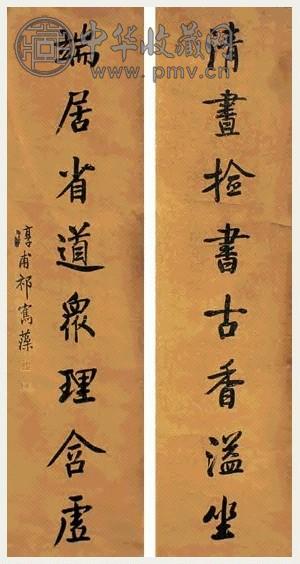 中华收藏网
www.pmv.cn
清晝撿書古香溢坐
端居省道眾理含虛
淳甫祁寯藻